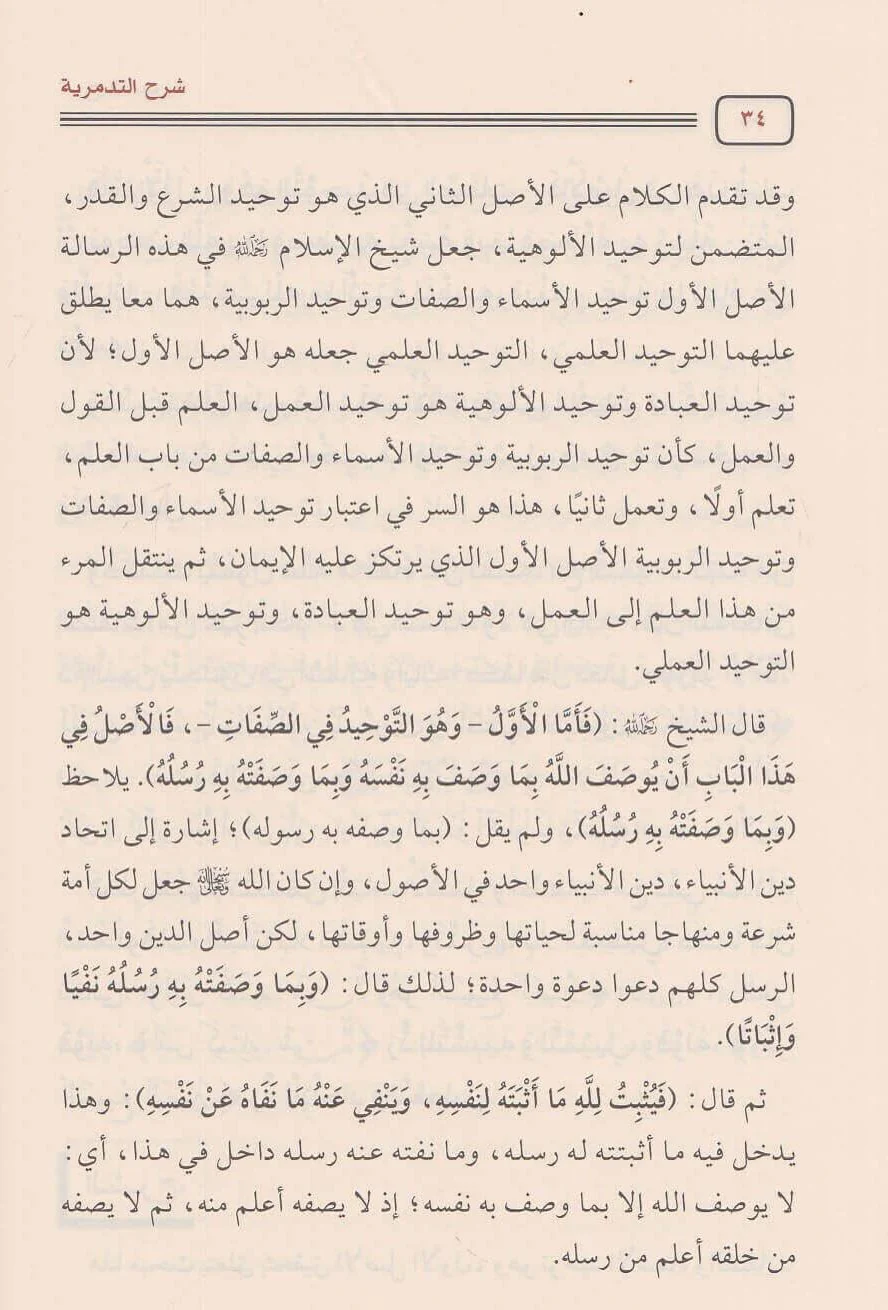 شرح التدمرية
٣٤
وقد تقدم الكلام على الأصل الثاني الذي هو توحيد الشرع والقدر،
المتضمن لتوحيد الألوهية، جعل شيخ الإسلام رَحِمَهُ ٱللَّهُ في هذه الرسالة
الأصل الأول توحيد الأسماء والصفات وتوحيد الربوبية، هما معا يطلق
عليهما التوحيد العلمي، التوحيد العلمي جعله هو الأصل الأول؛ لأن
توحيد العبادة وتوحيد الألوهية هو توحيد العمل، العلم قبل القول
والعمل، كأن توحيد الربوبية وتوحيد الأسماء والصفات من باب العلم،
تعلم أولًا، وتعمل ثانيًا، هذا هو السر في اعتبار توحيد الأسماء والصفات
وتوحيد الربوبية الأصل الأول الذي يرتكز عليه الإيمان، ثم ينتقل المرء
من هذا العلم إلى العمل، وهو توحيد العبادة، وتوحيد الألوهية هو
التوحيد العملي.
قال الشيخ رَحِمَهُ ٱللَّهُ: (فَأَمَّا الْأَوَّلُ - وَهُوَ التَّوْحِيدُ فِي الصِّفَاتِ -، فَالْأَصْلُ فِي
هَذَا الْبَابِ أَنْ يُوصَفَ اللَّهُ بِمَا وَصَفَ بِهِ نَفْسَهُ وَبِمَا وَصَفَتْهُ بِهِ رُسُلُهُ). يلاحظ
(وَبِمَا وَصَفَتْهُ بِهِ رُسُلُهُ)، ولم يقل: (بما وصفه به رسوله)؛ إشارة إلى اتحاد
دين الأنبياء، دين الأنبياء واحد في الأصول، وإن كان الله جعل لكل أمة
شرعة ومنهاجا مناسبة لحياتها وظروفها وأوقاتها، لكن أصل الدين واحد،
الرسل كلهم دعوا دعوة واحدة؛ لذلك قال: (وَبِمَا وَصَفَتْهُ بِهِ رُسُلُهُ نَفْيًا
وَإِثْبَاتًا).
ثم قال: (فَيُثْبِتُ لِلَّهِ مَا أَثْبَتَهُ لِنَفْسِهِ، وَيَنْفِي عَنْهُ مَا نَفَاهُ عَنْ نَفْسِهِ): وهذا
يدخل فيه ما أثبتته له رسله، وما نفته عنه رسله داخل في هذا، أي:
لا يوصف الله إلا بما وصف به نفسه؛ إذ لا يصفه أعلم منه، ثم لا يصفه
من خلقه أعلم من رسله.